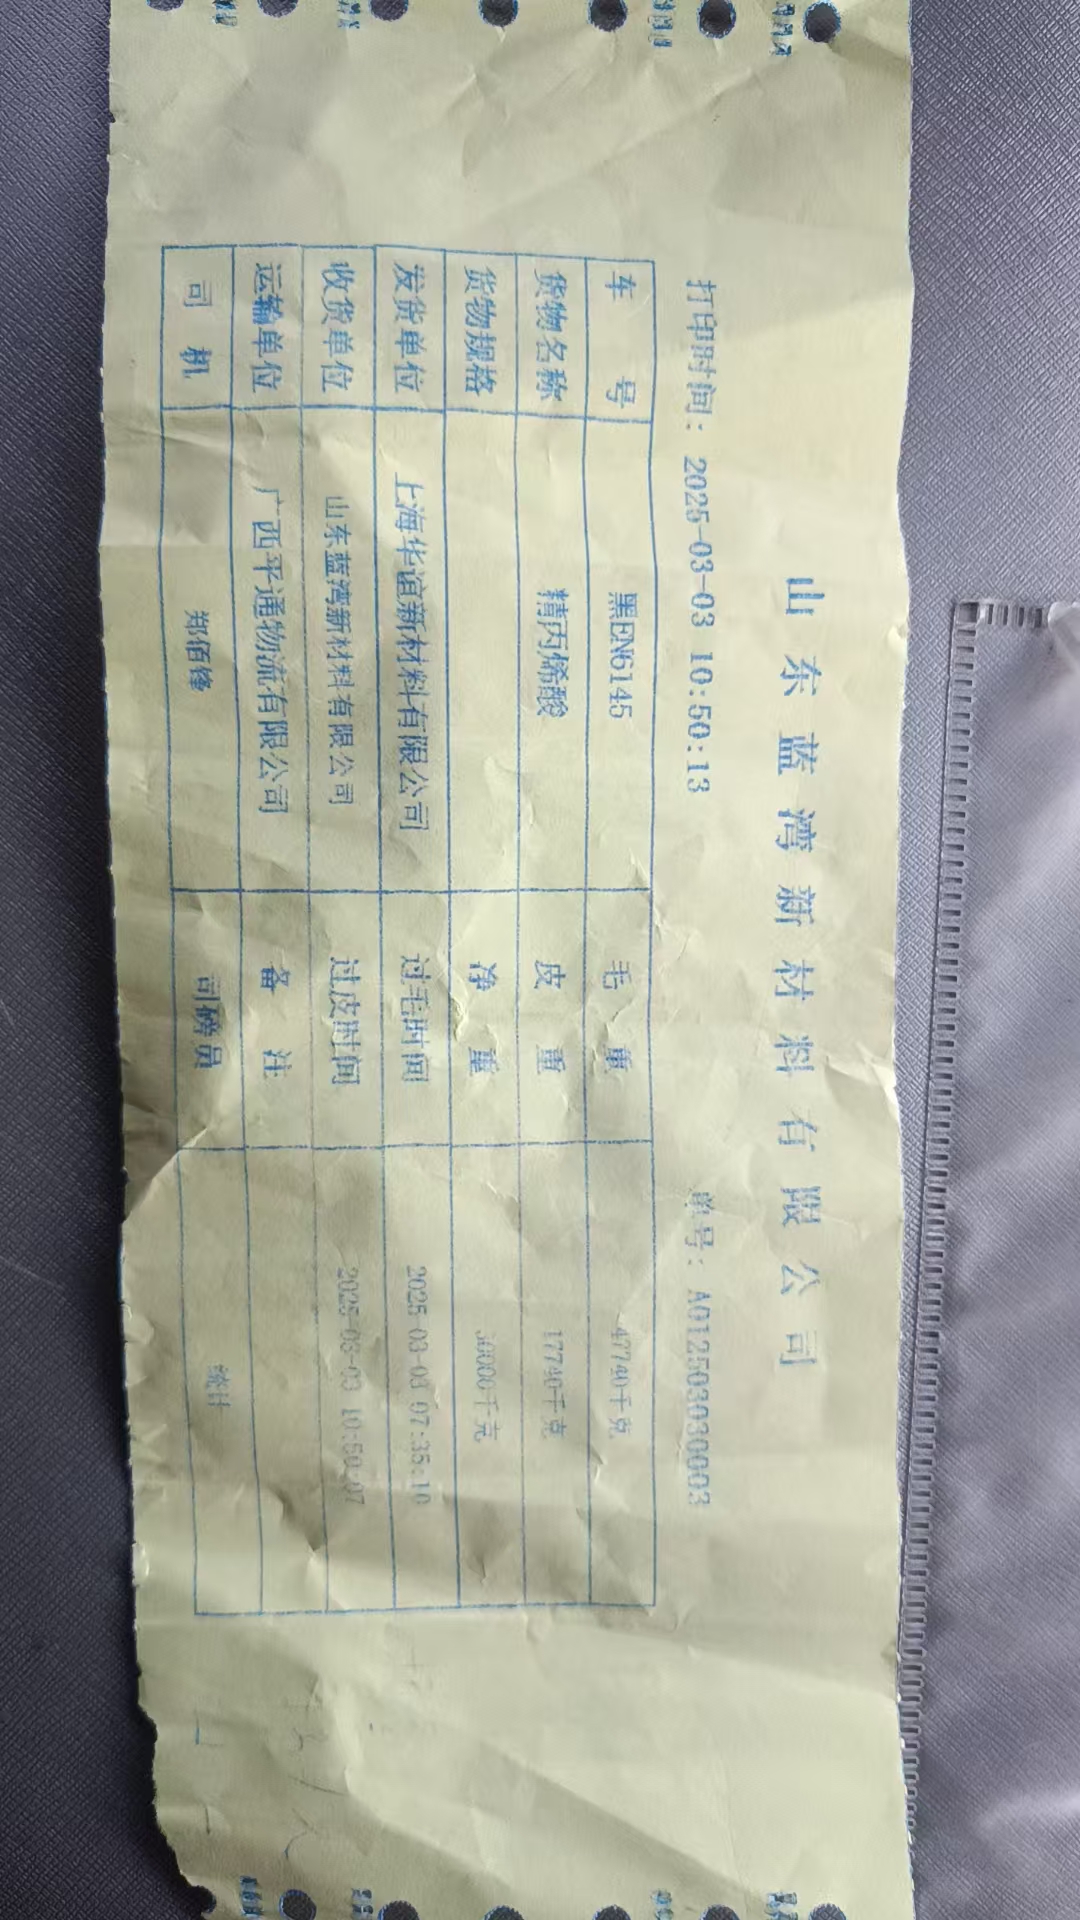 山东蓝湾新材料有限公司
打印时间: 2025-03-03 10:50:13 单号: A01250303​0003
车号 黑EN6145 毛重 47740千克
货物名称 精丙烯酸 皮重 17740千克
货物规格 净重 30000千克
发货单位 上海华谊新材料有限公司 过毛时间 2025-03-03 07:35:10
收货单位 山东蓝湾新材料有限公司 过皮时间 2025-03-03 10:50:07
运输单位 广西平通物流有限公司 备注
司机 郑佰锋 司磅员 统计